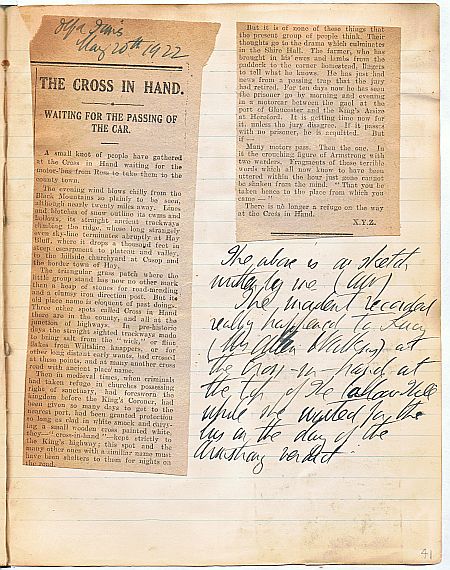 May 20th 1922
THE CROSS IN HAND.
WAITING FOR THE PASSING OF
THE CAR.
A small knot of people have gathered
at the Cross in Hand waiting for the
motor-bus from Ross to take them to the
county town.
The evening wind blows chilly from the
Black Mountains so plainly to be seen,
although nearly twenty miles away. Lines
and blotches of snow outline its cwms and
hollows, its straight ancient trackways
climbing the ridge, whose long strangely
even sky-line terminates abruptly at Hay
Bluff, where it drops a thousand feet in
steep escarpment to plateau and valley,
to the hillside churchyard at Cusop and
the border town of Hay.
The triangular grass patch where the
little group stand has now no other mark
than a heap of stones for road-mending
and a clumsy iron direction post. But its
old place name is eloquent of past doings.
Three other spots called Cross in Hand
there are in the county, and all at the
junction of highways. In pre-historic
days the straight sighted trackways made
to bring salt from the "wick," or flint
flakes from Wiltshire knappers, or for
other long distant early wants, had crossed
at these points, and at many another cross
road with ancient place name.
Then in mediæval times, when criminals
had taken refuge in churches possessing
right of sanctuary, had foresworn the
kingdom before the King's Coroner, had
been given so many days to get to the
nearest port, had been granted protection
so long as clad in white smock and carry-
ing a small wooden cross painted white,
they—"cross-in-hand"—kept strictly to
the King's highway; this spot and the
many other ones with a similar name must
have been shelters to them for nights on
the road.
But it is none of these things that
the present group of people think. Their
thoughts go to the drama which culminates
in the Shire Hall. The farmer, who has
brought in his ewes and lambs from the
paddock to the corner homestead, lingers
to tell what he knows. He has just had
news from a passing trap that the jury
had retired. For ten days now he has seen
the prisoner go by morning and evening
in a motorcar between the gaol at the
port of Gloucester and the King's Assize
at Hereford. It is getting time now for
it, unless the jury disagree. If it passes
with no prisoner, he is acquitted. But
if—
Many motors pass. Then the one. In
it the crouching figure of Armstrong with
two warders. Fragments of these terrible
words which all now know to have been
uttered within the hour just gone cannot
be shaken from the mind. "That you be
taken hence to the place from which you
came—"
There is no longer a refuge on the way
at the Cross in Hand.
X.Y.Z.
The above is a sketch
written by me (AW)
The incident recorded
really happened to
(Mrs Allen Watkins) at
the Cross-in-hand at
the top of the Callow Hill
while she waited for the
bus on the day of the
Armstrong verdict.
41